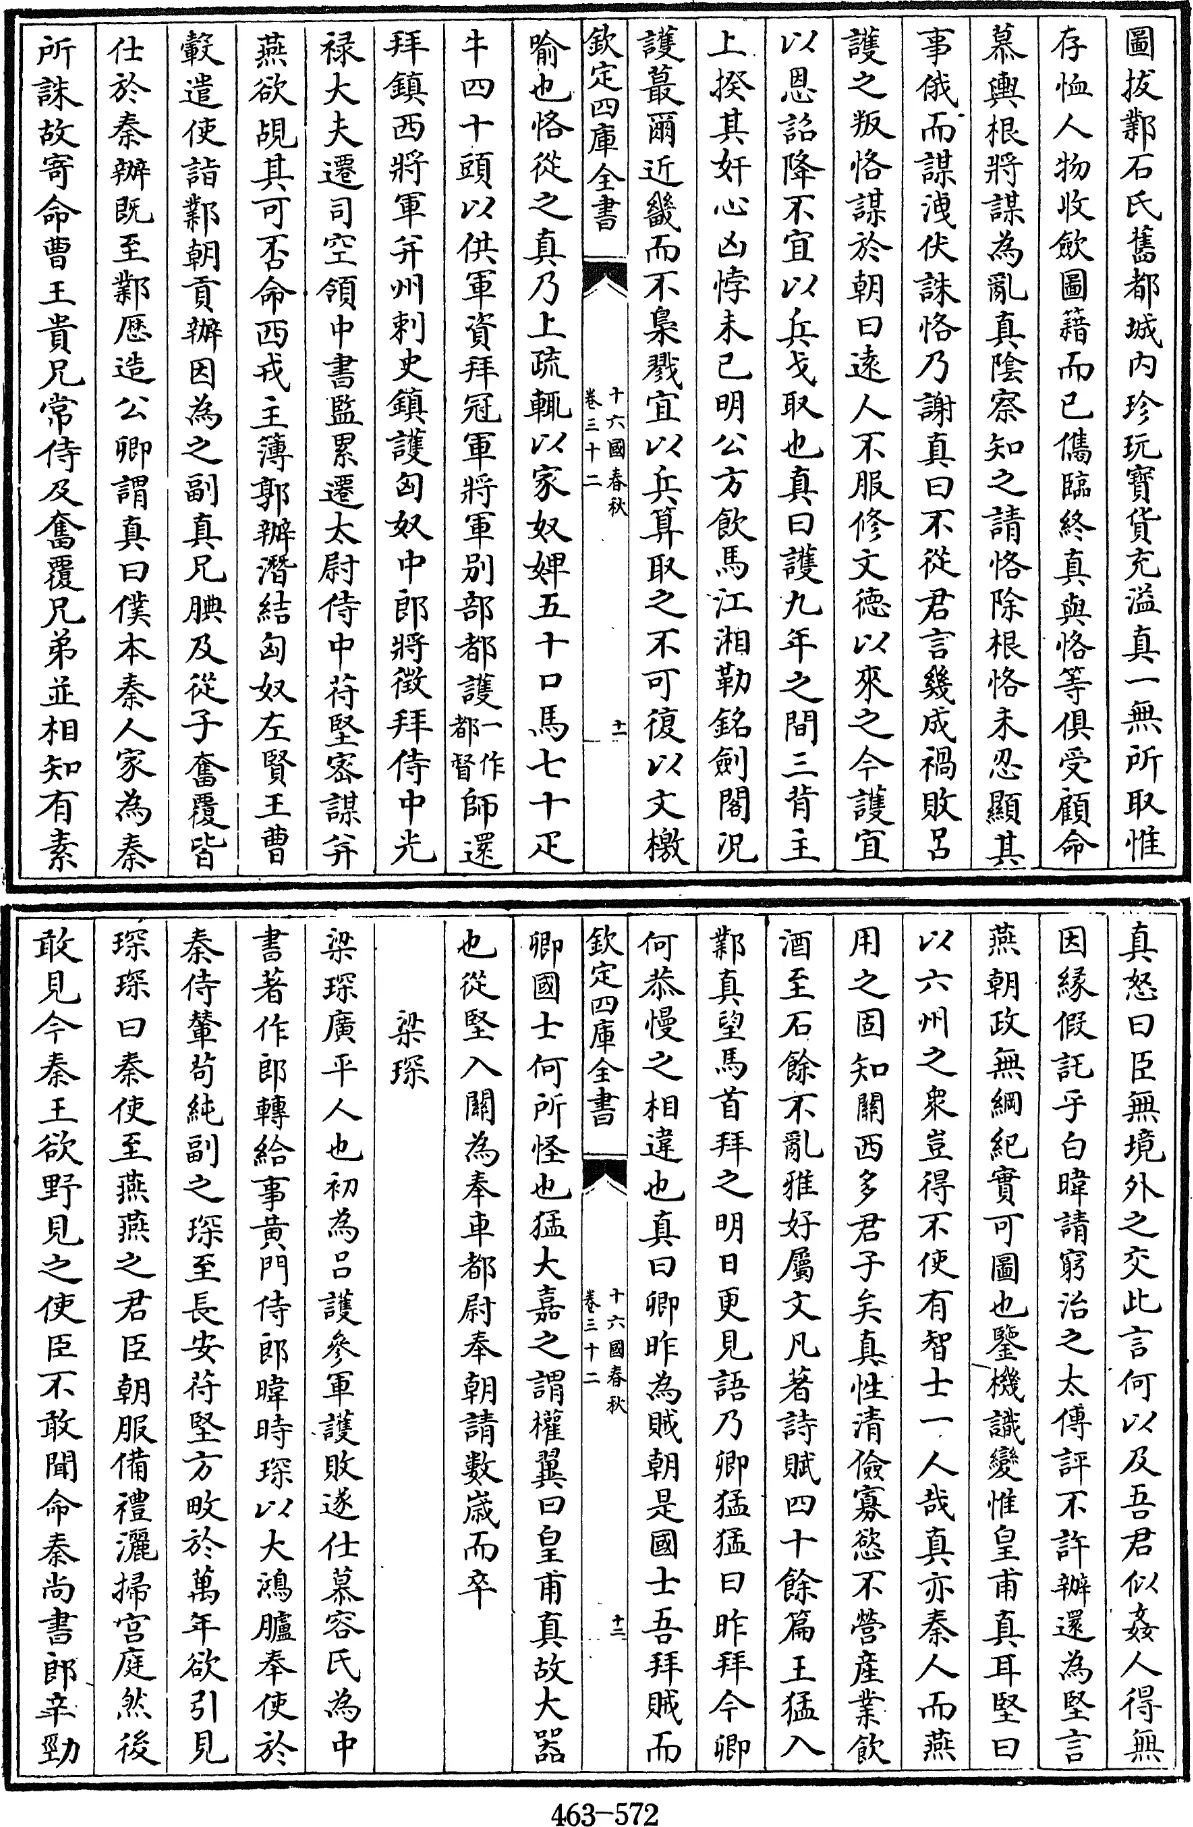 圖拔鄴石氏舊都城内珍玩寳貨充溢真一無所取惟
存恤人物收歛圖籍而已儁臨終真與恪等俱受顧命
慕輿根將謀為亂真陰察知之請恪除根恪未忍顯其
事俄而謀洩伏誅恪乃謝真曰不從君言幾成禍敗吕
護之叛恪謀於朝曰逺人不服修文德以來之今護宜
以恩詔降不宜以兵戈取也真曰護九年之間三背主
上揆其奸心凶悖未已明公方飲馬江湘勒銘劍閣况
護蕞爾近畿而不梟戮宜以兵算取之不可復以文檄
欽定四庫全書
十六國春秋
卷三十二
十一
喻也恪從之真乃上疏輒以家奴婢五十口馬七十疋
牛四十頭以供軍資拜冠軍將軍别部都護一作都督師還
拜鎮西將軍并州刺史鎮護匈奴中郎將徴拜侍中光
禄大夫遷司空領中書監累遷太尉侍中苻堅密謀并
燕欲覘其可否命西戎主簿郭辦潛結匈奴左賢王曹
轂遣使詣鄴朝貢辦因為之副真兄腆及從子奮覆皆
仕於秦辦既至鄴歴造公卿謂真曰僕本秦人家為秦
所誅故寄命曹王貴兄常侍及奮覆兄弟並相知有素
真怒曰臣無境外之交此言何以及吾君似姦人得無
因縁假託乎白暐請窮治之太傅評不許辦還為堅言
燕朝政無綱紀實可圖也鑒機識變惟皇甫真耳堅曰
以六州之衆豈得不使有智士一人哉真亦秦人而燕
用之固知關西多君子矣真性清儉寡慾不營産業飲
酒至石餘不亂雅好屬文凡著詩賦四十餘篇王猛入
鄴真望馬首拜之明日更見語乃卿猛猛曰昨拜今卿
何恭慢之相違也真曰卿昨為賊朝是國士吾拜賊而
欽定四庫全書
十六國春秋
卷三十二
十二
卿國士何所怪也猛大嘉之謂權翼曰皇甫真故大器
也從堅入關為奉車都尉奉朝請數歲而卒
梁琛
梁琛廣平人也初為吕護參軍護敗遂仕慕容氏為中
書著作郎轉給事黄門侍郎暐時琛以大鴻臚奉使於
秦侍輦茍純副之琛至長安苻堅方畋於萬年欲引見
琛琛曰秦使至燕燕之君臣朝服備禮灑掃宫庭然後
敢見今秦王欲野見之使臣不敢聞命秦尚書郎辛勁
463-572